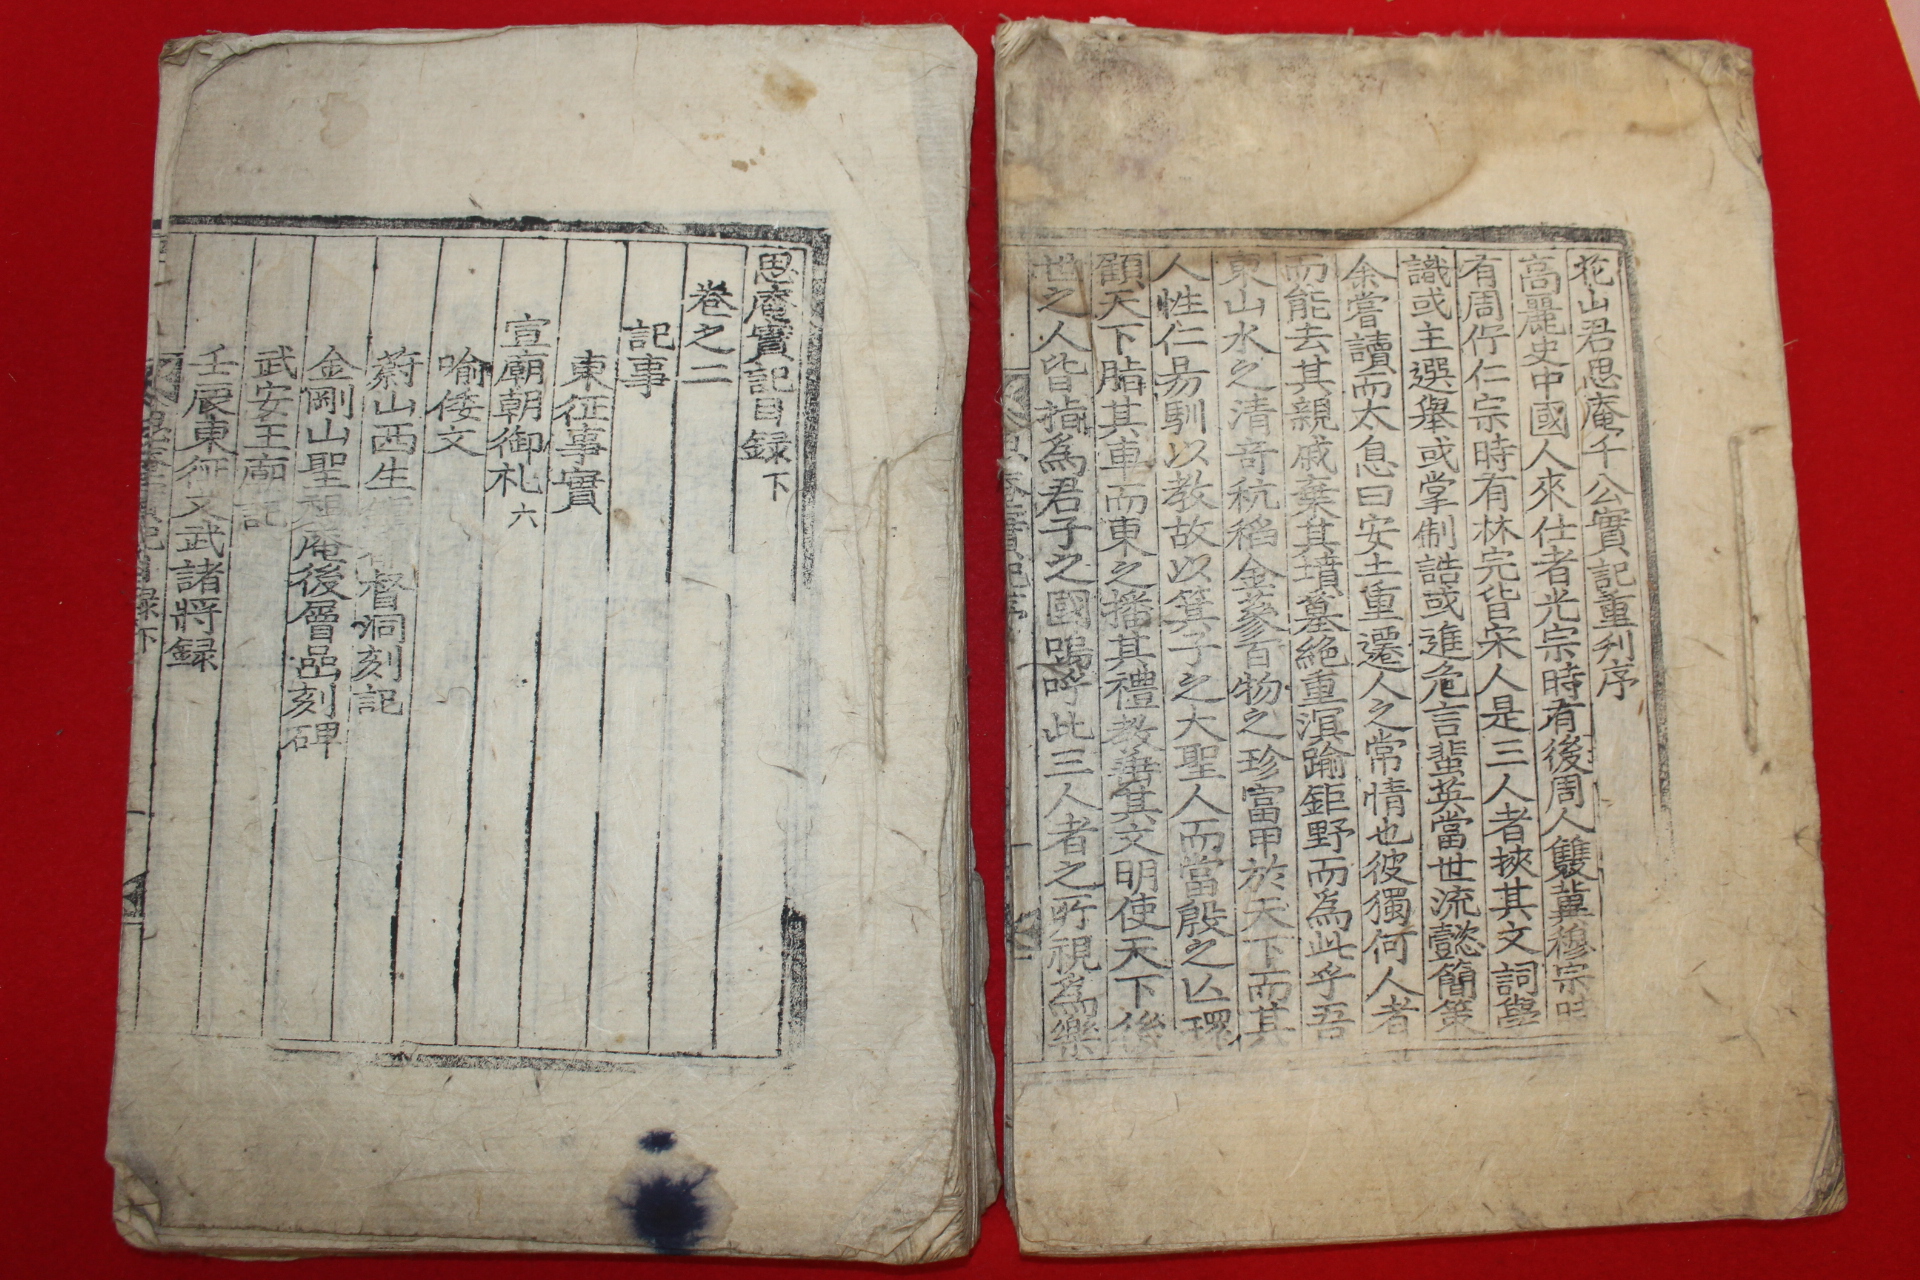 花山君思庵千公實記重刋序
高麗史中國人來仕者光宗時有後周人雙冀穆宗時
有周佇仁宗時有林完皆宋人是三人者挾其文詞學
識或主選舉或掌制誥或進危言蜚英當世流懿簡策
余嘗讀而太息曰安土重遷人之常情也彼獨何人者
而能去其親戚棄其墳墓絶重溟踰鉅野而為此乎吾
東山水之清竒秔稻金蔘百物之珍富甲於天下而其
人性仁易馴以教故以箕子之大聖人而當殷之亾環
顧天下脂其車而東之播其禮教善其文明使天下後
世之人皆指為君子之國嗚呼此三人者之所視為樂
思庵實記目録下
卷之二
記事
東征事實
宣廟朝御札六
喻倭文
蔚山西生 督洞刻記
金剛山聖祖庵後層嵒刻碑
武安王廟記
壬辰東征文武諸將録